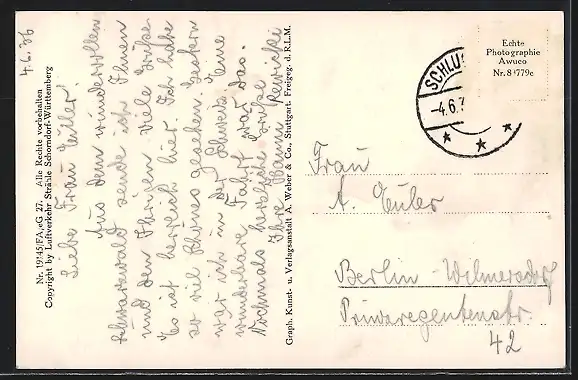 4.6.36
Liebe Frau Euler!
Aus dem wundervollen
Schwarzwald sende ich Ihnen
und den Ihrigen viele Grüße
Es ist herrlich hier. Ich habe
so viel Schönes gesehen. Gestern
war ich in der Schweiz. Eine
wunderbare Fahrt war das.
Nochmals herzliche Grüße
Ihre Hanni
Nr. 19145/FA,eG 27. Alle Rechte vorbehalten
Copyright by Luftverkehr Strähle Schorndorf-Württemberg
Graph. Kunst- u. Verlagsanstalt A. Weber & Co., Stuttgart. Freigeg. d. R.L.M.
SCHLU
-4.6.
Echte
Photographie
Awuco
Nr. 8779c
Frau
A. Euler
Berlin-Wilmersdorf
Prinzregentenstr.
42